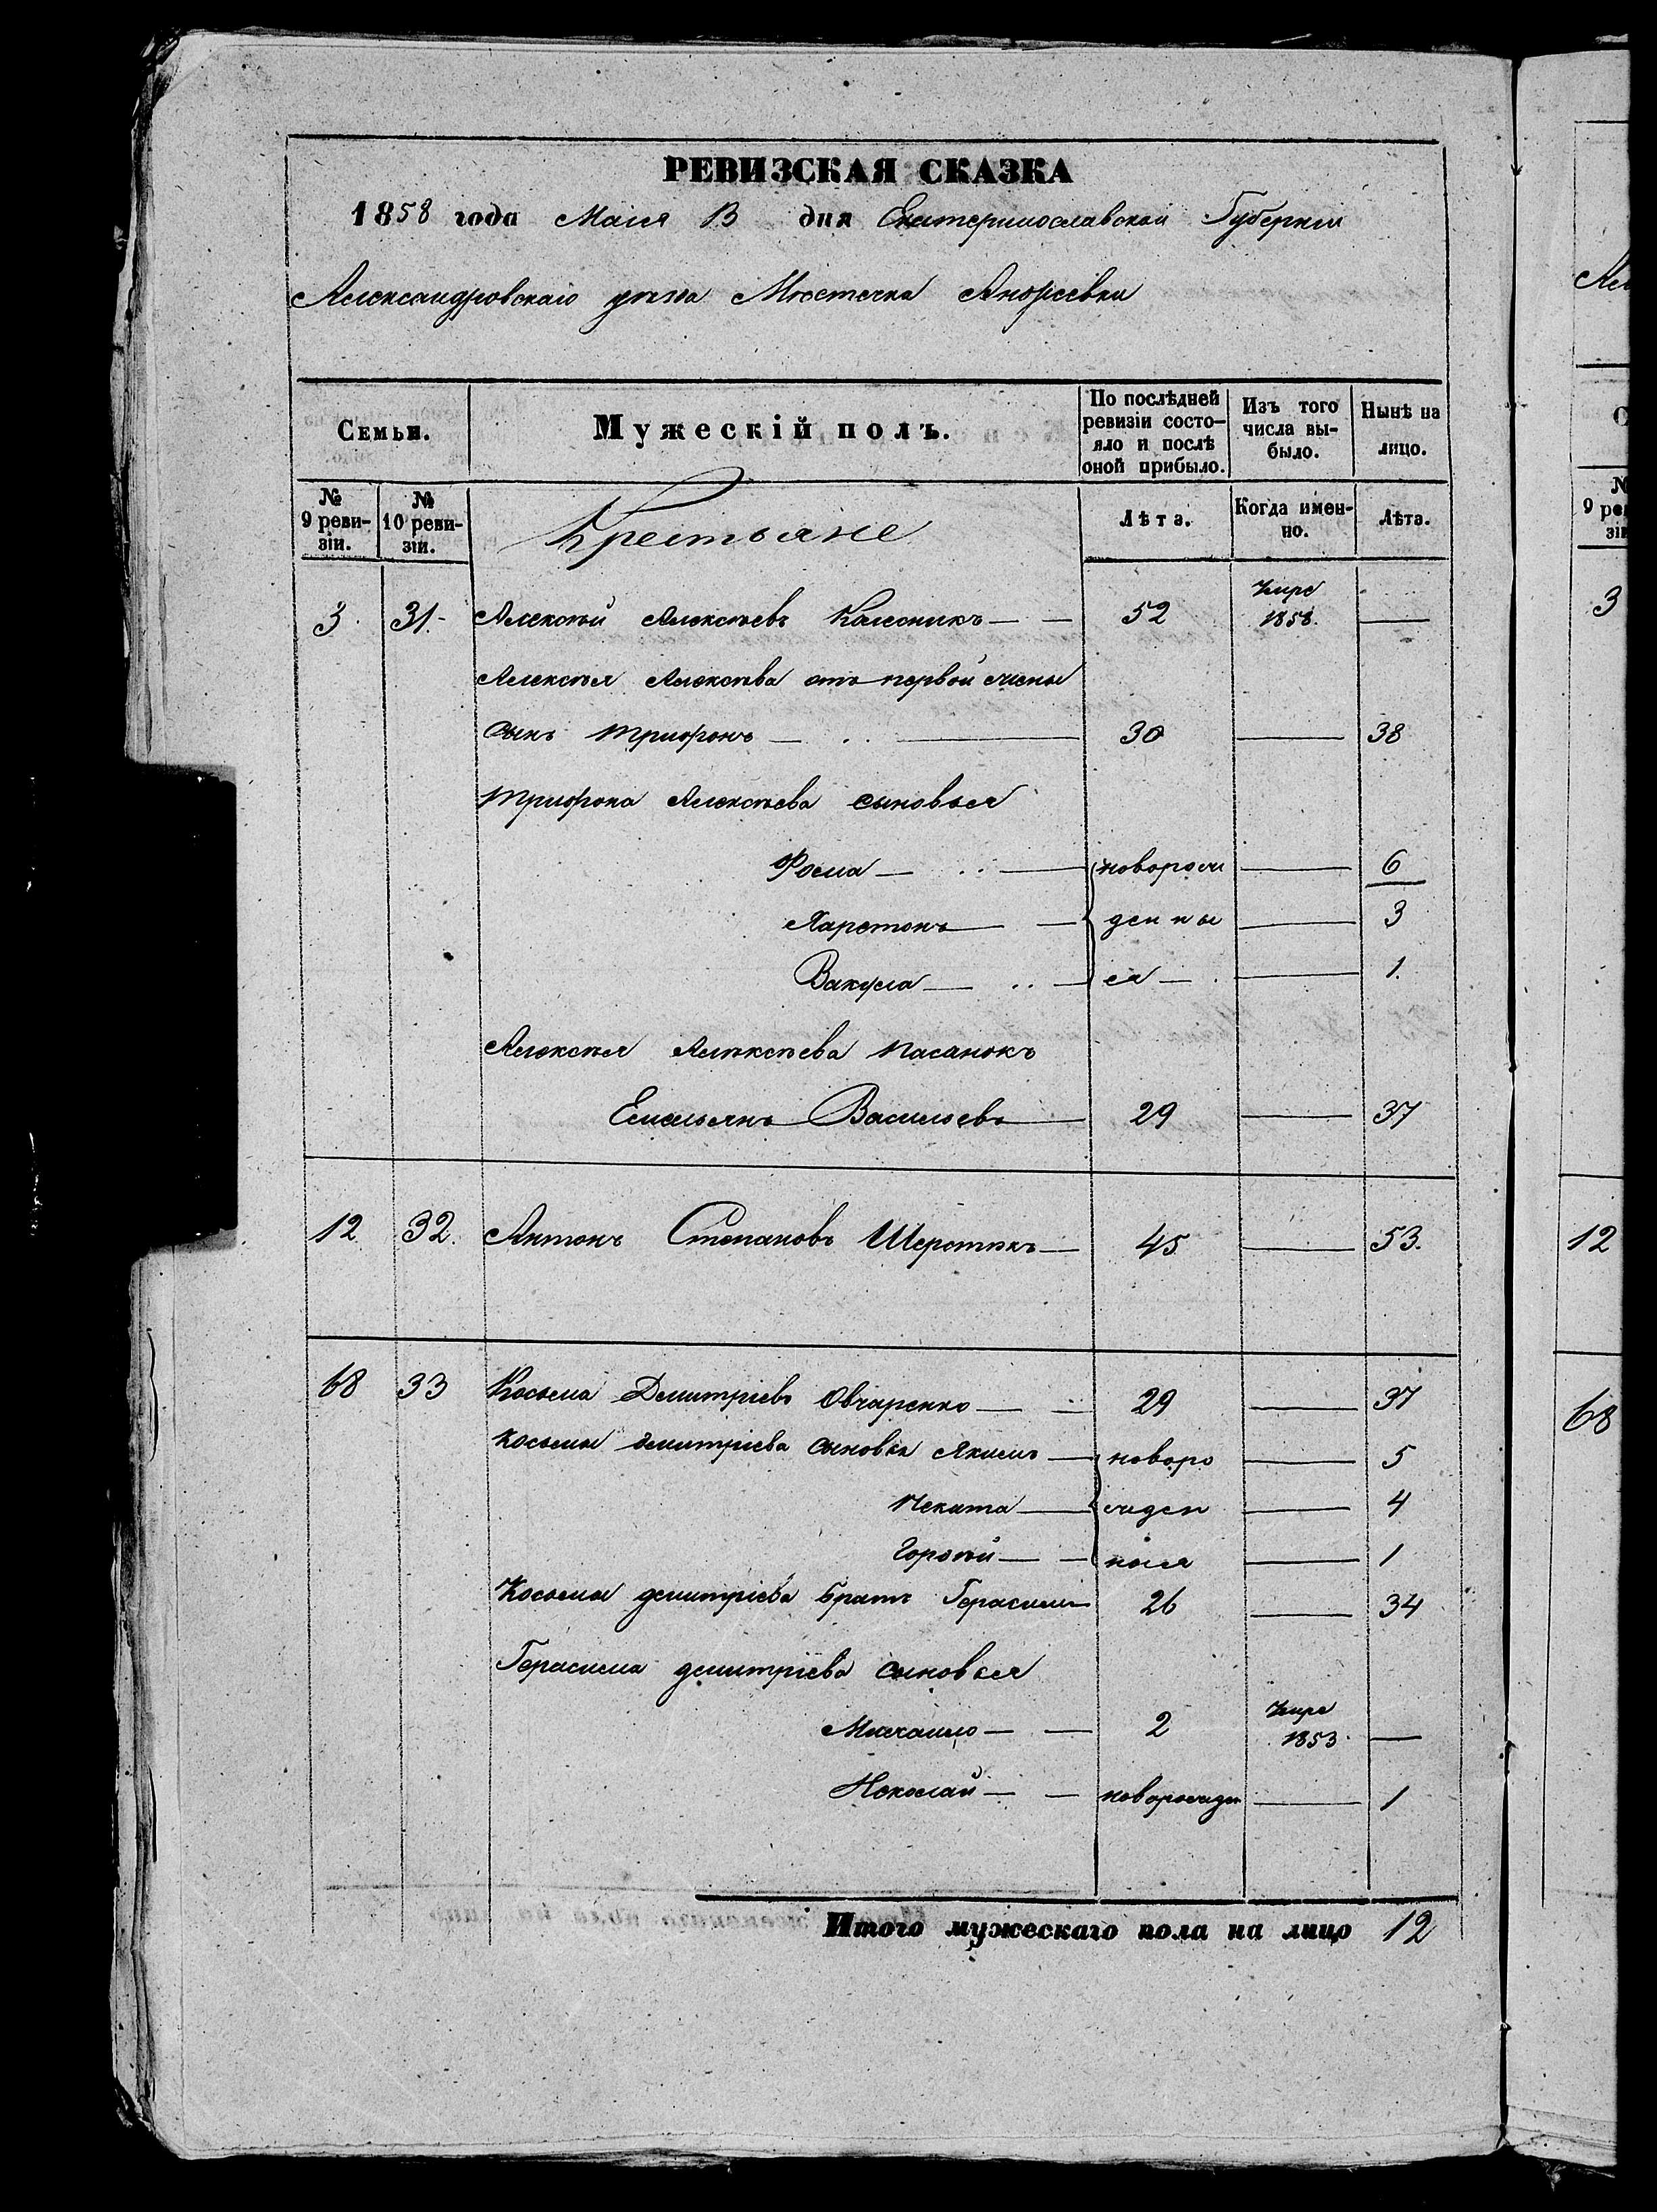 РЕВИЗСКАЯ СКАЗКА
1858 года Маия 13 дня Екатеринославской Губерніи
Александровскаго уѣзда Мѣстечка Андреевки
Семьи. Мужескій полъ. По послѣдней ревизіи состо- яло и послѣ оной прибыло. Изъ того числа вы- было. Нынѣ на лицо.
№ 9 реви- зіи. № 10 реви- зіи. Крестьяне Лѣта. Когда имен- но. Лѣта.
3. 31. Алексѣй Алексѣевъ Калесникъ 52 Умре 1858. —
Алексѣя Алексѣва отъ первой жены
сынъ Трифонъ 30 — 38
Трифона Алексѣева сыновья
Фома — новорож — 6
Харетонъ — денны — 3
Вакула — ея — 1.
Алексѣя Алѣксѣева пасанокъ
Емельянъ Васильевъ 29 — 37
12 32. Антонъ Степановъ Шерстюкъ 45 — 53.
68 33 Косьма Дмитріевъ Овчаренко 29 — 37
Косьмы дмитріева сыновья Якимъ — новоро — 5
Неката — жден — 4
Горѣй — ныя — 1
Косьмы дмитріева братъ Герасимъ 26 — 34
Герасима дмитріева сыновья
Михаило — 2 Умре 1853. —
Неколай — новорожден — 1
Итого мужескаго пола на лицо 12
Ал
№ 9 ре зіи
3
12
68